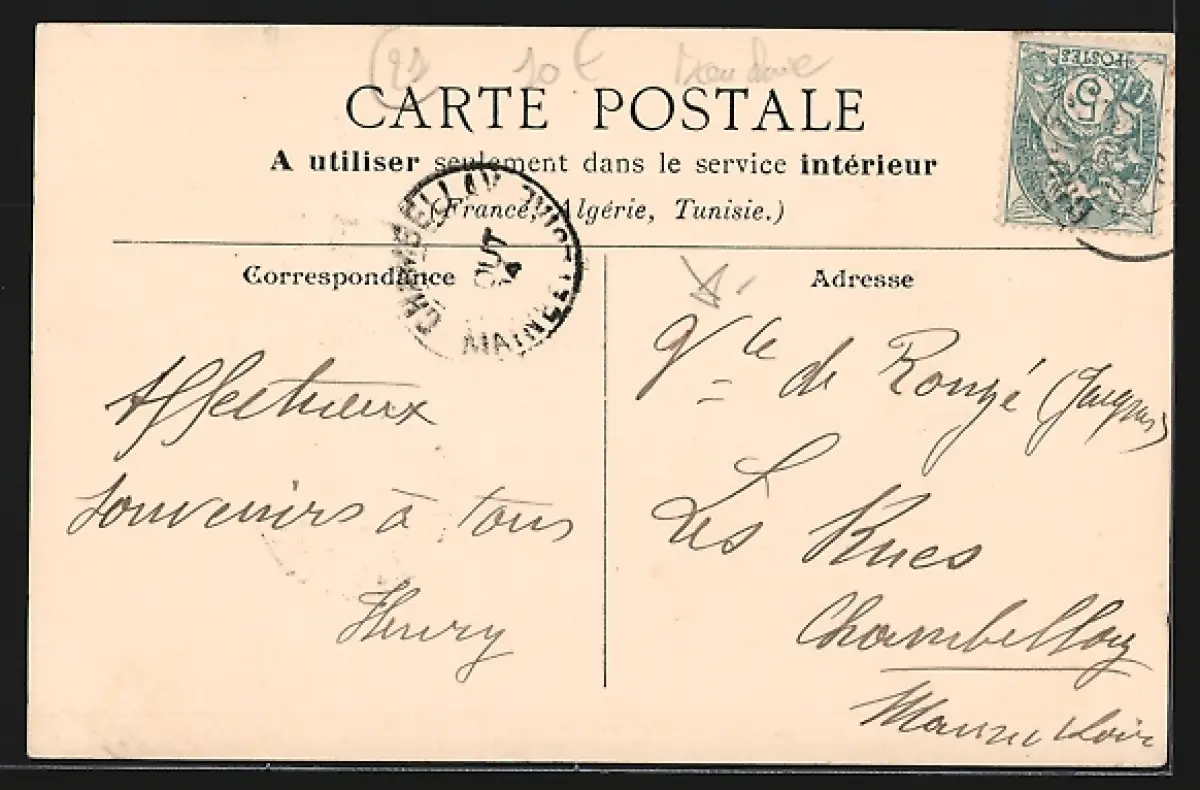 10 €
CARTE POSTALE
A utiliser seulement dans le service intérieur
(France, Algérie, Tunisie.)
POSTES
5
CHAMBELLAY
AOUT
MAINE ET
Correspondance
Adresse
Affectueux
souvenirs à tous
Henry
Vte de Rougé (Jacques)
Les Rues
Chambellay
Maine et Loire